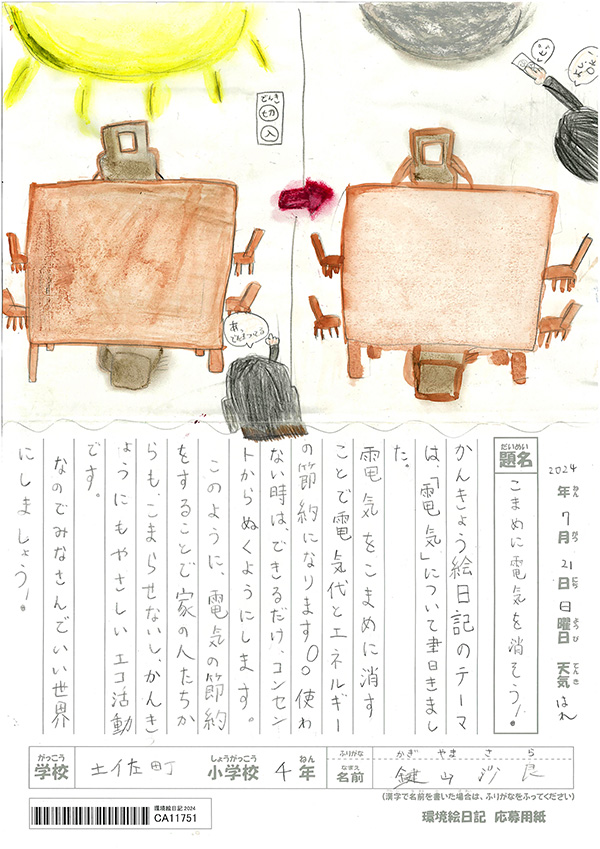 でんき
切
入
よし、
OK!
あ、
でんきついてる
2024年ねん 7月がつ 21日にち 日曜日ようび 天気てんき はれ
題名だいめい こまめに電気を消そう!。
かんきょう絵日記のテーマ
は、「電気」について書きまし
た。
電気をこまめに消す
ことで電気代とエネルギー
の節約になります。使わ
ない時は、できるだけ、コンセン
トからぬくようにします。
このように、電気の節約
をすることで家の人たちか
らも、こまらせないし、かんき
ょうにもやさしいエコ活動
です。
なのでみなさんでいい世界
にしましょう!。
がっこう しょうがっこう ねん ふりがな かぎ やま さ ら
学校 土佐町 小学校 4年 なまえ 名前 鍵山沙良
(漢字で名前を書いた場合は、ふりがなをふってください)
環境絵日記 応募用紙
環境絵日記2024
CA11751